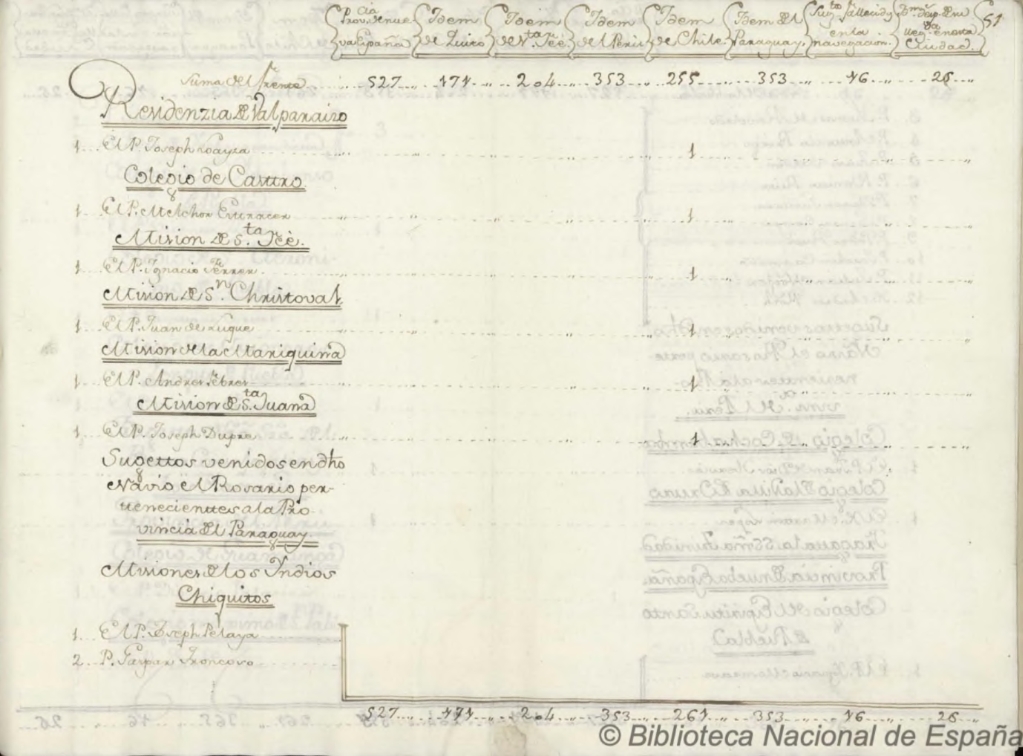 Prov.cia Nueva España
Idem de Quito
Idem de N.ta Fè
Idem del Peru
Idem de Chile
Idem del Paraguay
Sug.tos fallecidos en la navegacion
Ciudad
51
Suma del frente 527 171 204 353 255 353 16 26
Residenzia de Valparaiso
1 El P. Joseph 1
Colegio de Castro
1 El P. Melchor 1
Mision de S.ta Fè
1 El P. Ignacio Ferrer 1
Mision de S.n Christoval
1 El P. Juan de Luque 1
Mision de la Mariquina
1 El P. Andres Febres 1
Mision de S.ta Juana
1 El P. Joseph Dupre 1
Sugettos venidos en dho
Navio el Rosario per-
tenecientes a la Pro
vincia del Paraguay
Misiones de los Indios
Chiquitos
1 El P. Joseph Pelaya
2 P. Gaspar Troncoso
527 171 204 353 261 353 16 26
© Biblioteca Nacional de España